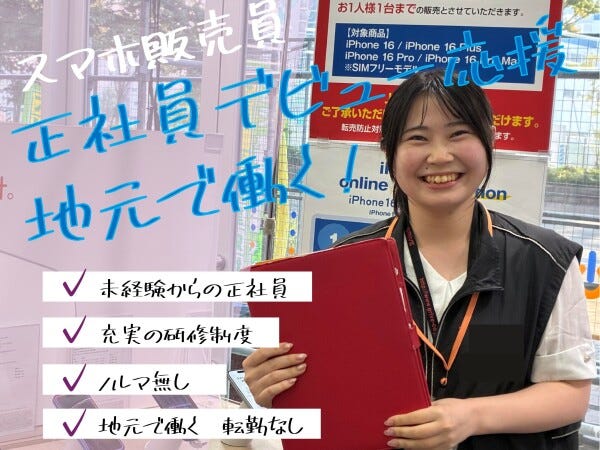 お1人様1台までの販売とさせていただきます。
【対象商品】
iPhone 16 / iPhone 16 Plus
iPhone 16 Pro / iPhone 16
※SIMフリーモデ
スマホ販売員
正社員デビュー応援
地元で働く!
ご了承いただ
だけます。
転売防止対
iPhone 16
✓ 未経験からの正社員
✓ 充実の研修制度
✓ ノルマ無し
✓ 地元で働く 転勤なし